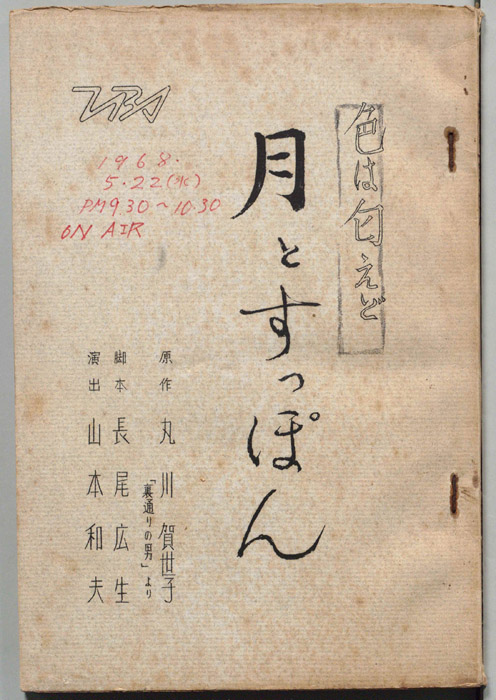 TBS
1968.
5.22(水)
PM9.30〜10.30
ON AIR
色は匂えど
月とすっぽん
原作 丸川賀世子
「裏通りの男」より
脚本 長尾広生
演出 山本和夫